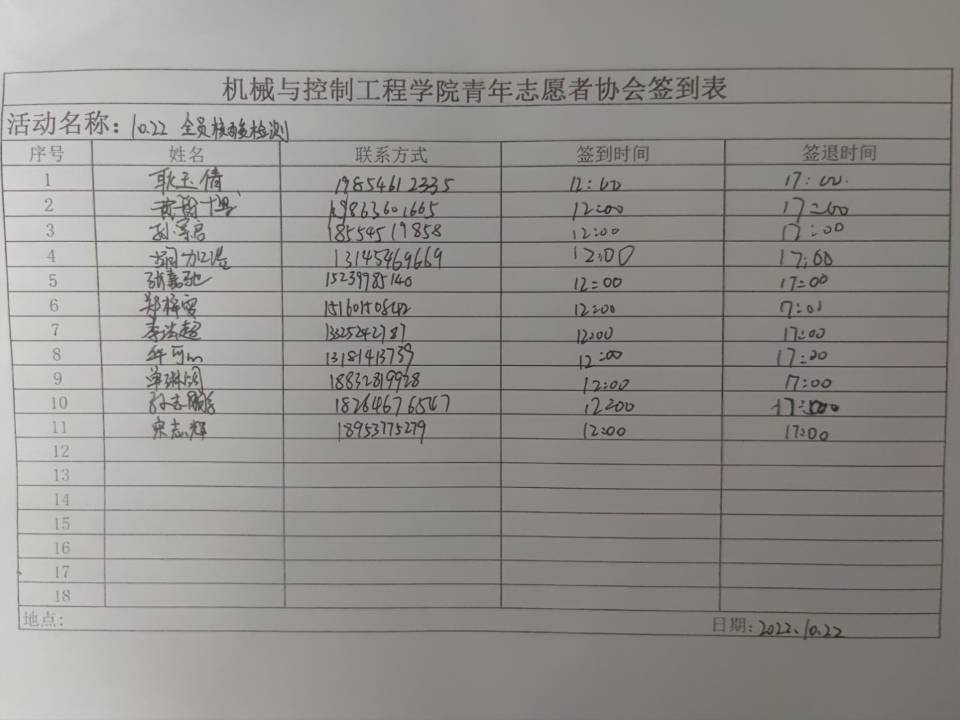 机械与控制工程学院青年志愿者协会签到表
活动名称：10.22 全员核酸检测
序号 姓名 联系方式 签到时间 签退时间
1 耿玉倩 19854612335 12:00 17:00
2 12:00 17:00
3 18554519858 12:00 17:00
4 13145469669 12:00 17:00
5 张嘉驰 15239785140 12:00 17:00
6 郑梓雯 12:00
7 李浩超 12:00 17:00
8 13181413739 12:00 17:00
9 单琳阔 18832819928 12:00 17:00
10 孙志鹏 18264676547 12:00 17:00
11 宋志辉 18953775279 12:00 17:00
12
13
14
15
16
17
18
地点： 日期：2022.10.22